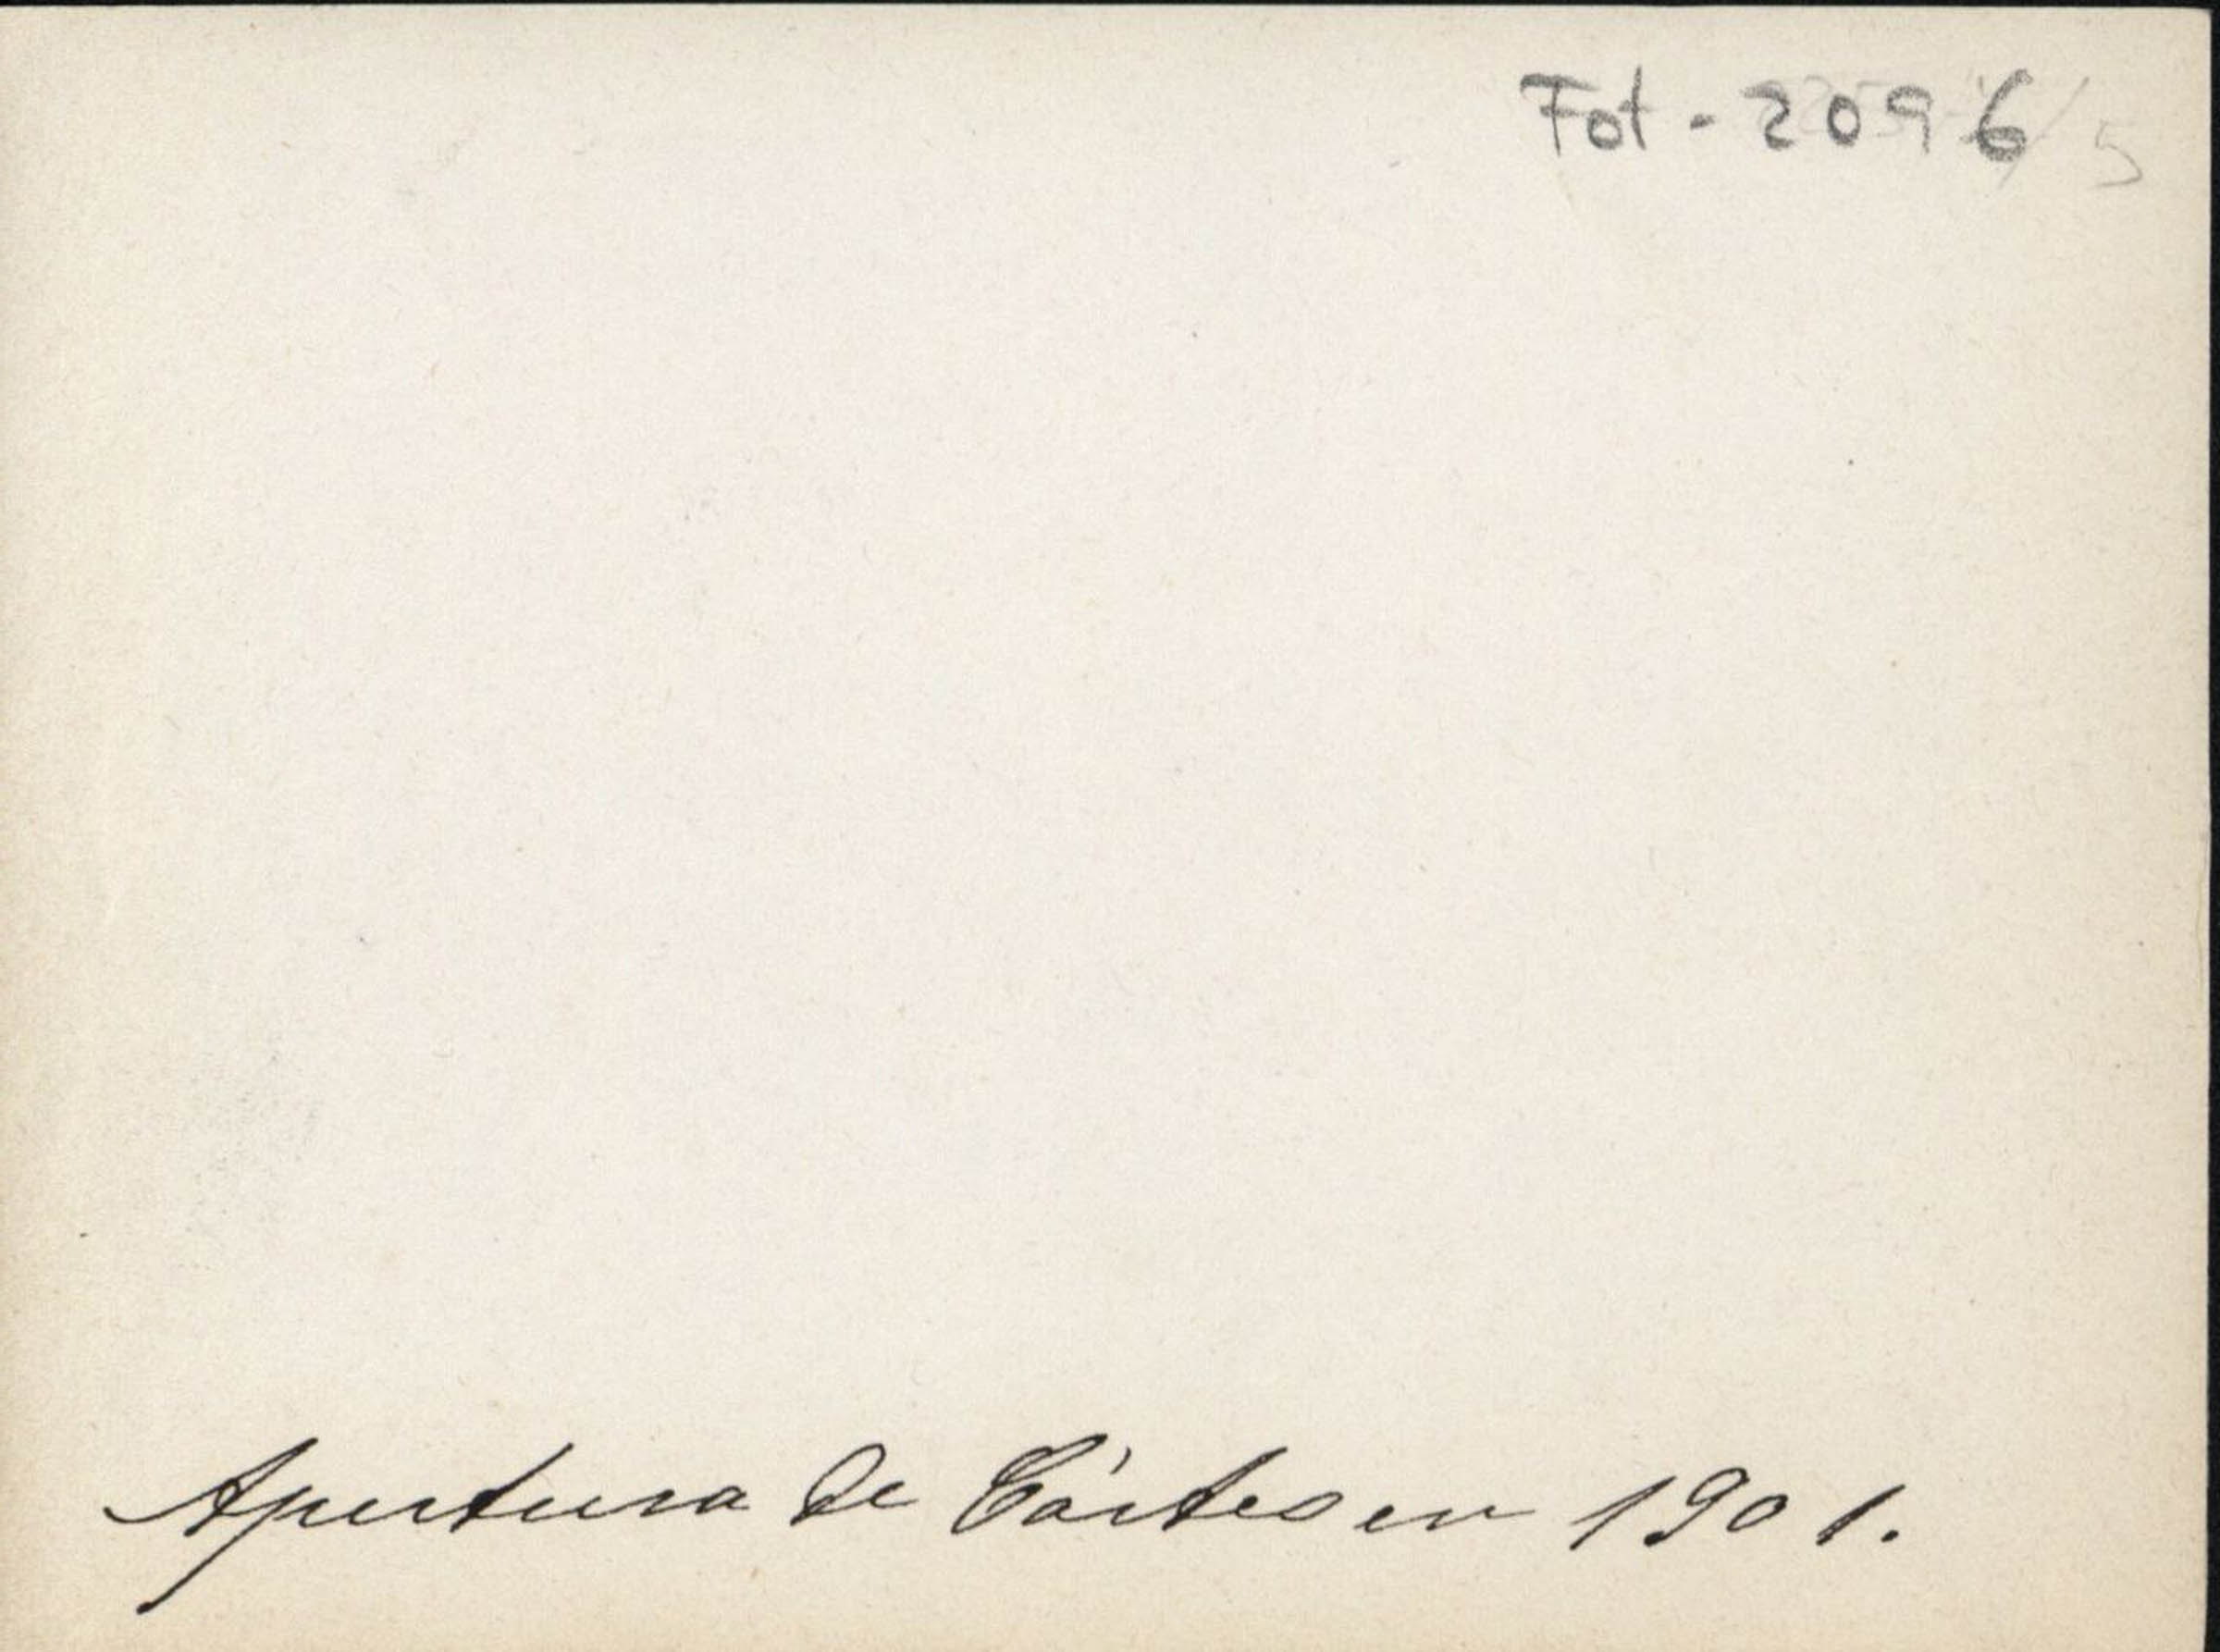 Fot - 2096
Apertura de Córtes en 1901.